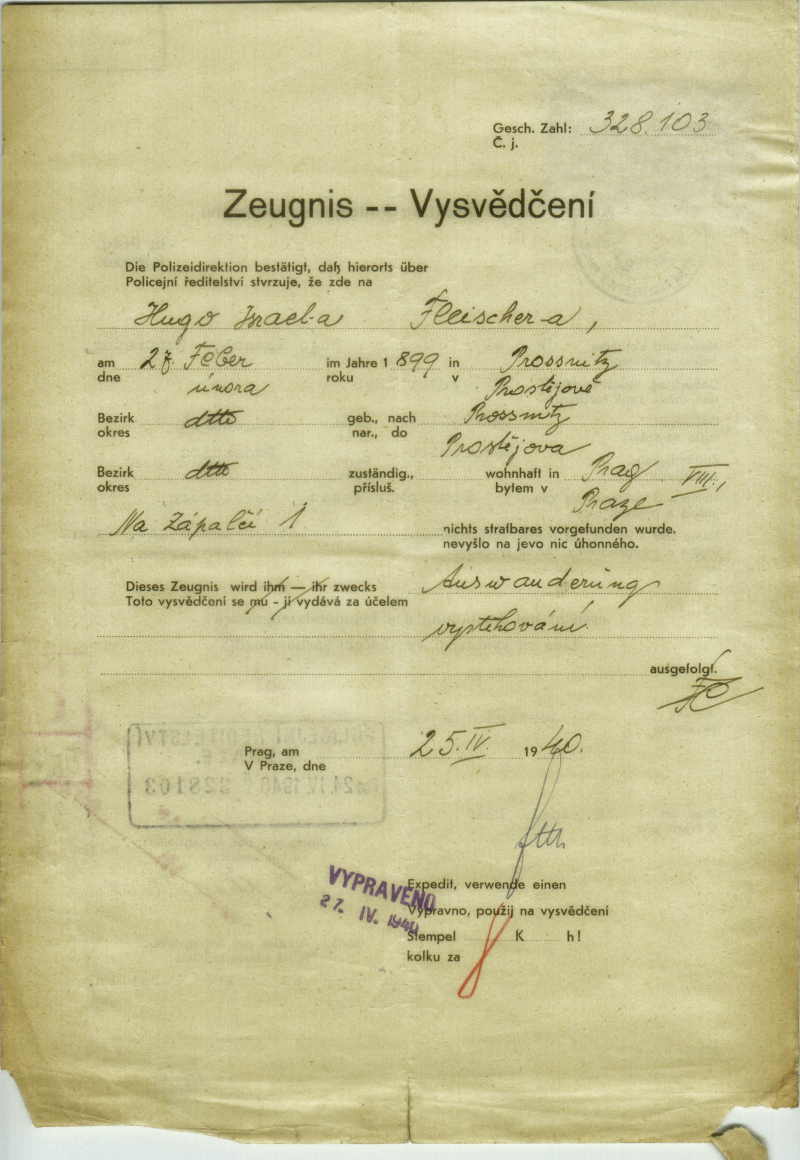 Gesch. Zahl: 328.103
Č. j.
Zeugnis -- Vysvědčení
Die Polizeidirektion bestätigt, daß hierorts über
Policejní ředitelství stvrzuje, že zde na
Hugo Israel-a Fleischer-a,
am 27. Feber im Jahre 1 899 in Prossnitz
dne února roku v Prostějově
Bezirk dtto geb., nach Prossnitz
okres nar., do Prostějova
Bezirk dtto zuständig., wohnhaft in Prag VIII.,
okres přísluš. bytem v Praze
Na Zápalčí 1 nichts strafbares vorgefunden wurde.
nevyšlo na jevo nic úhonného.
Dieses Zeugnis wird ihm — ihr zwecks Auswanderung
Toto vysvědčení se mu - jí vydává za účelem
vystěhování
ausgefolgt.
Prag, am 25. IV. 19 40.
V Praze, dne
POLICEJNÍ ŘEDITELSTVÍ
24. IV. 1940 328103
VYPRAVENO
27. IV. 1940
Expedit, verwende einen
Výpravno, použij na vysvědčení
Stempel K h!
kolku za